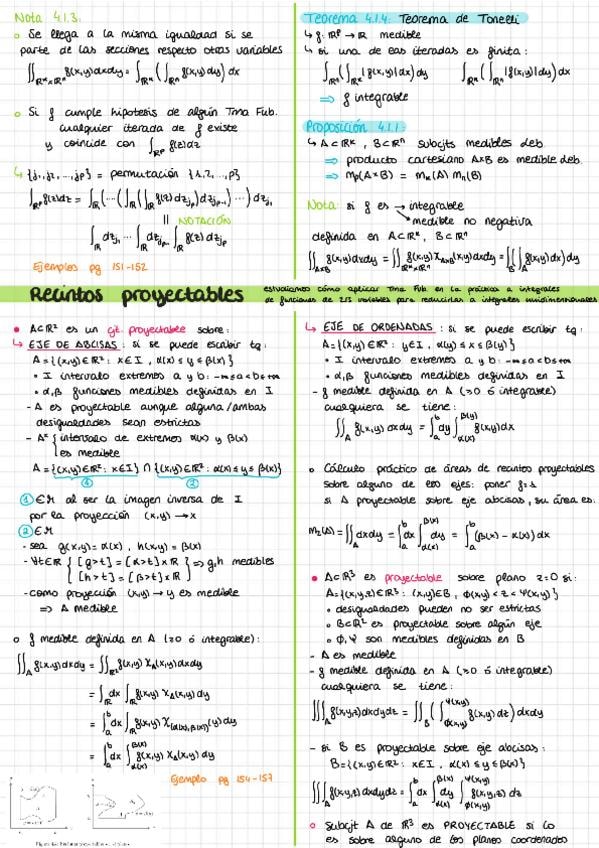 Nota 4.1.3:
◦ Se llega a la misma igualdad si se
parte de las secciones respecto otras variables
∬_{ℝᵐ×ℝⁿ} f(x,y)dxdy = ∫_{ℝᵐ} (∫_{ℝⁿ} f(x,y) dy) dx
◦ Si f cumple hipotesis de algún Tma Fub.
cualquier iterada de f existe
y coincide con ∫_{ℝᵖ} f(z)dz
↳ {j₁, j₂, ..., jₚ} = permutación {1, 2, ..., p}
∫_{ℝᵖ} f(z)dz = ∫_ℝ (... (∫_ℝ (∫_ℝ f(z) dz_{jₚ}) dz_{jₚ₋₁}) ...) dz_{j₁}
|| NOTACIÓN
∫_ℝ dz_{j₁} ... ∫_ℝ dz_{jₚ₋₁} ∫_ℝ f(z) dz_{jₚ}
Ejemplos pg 151-152
Teorema 4.1.4: Teorema de Tonelli
↳ f: ℝᵖ → ℝ medible
↳ si una de eas iteradas es finita:
∫_{ℝⁿ} (∫_{ℝᵐ} |f(x,y)| dx) dy ∫_{ℝᵐ} (∫_{ℝⁿ} |f(x,y)| dy) dx
⇒ f integrable
Proposición 4.1.1:
↳ A⊂ℝᵏ, B⊂ℝⁿ subcjts medibles Leb.
⇒ producto cartesiano A×B es medible Leb.
⇒ mₚ(A×B) = mₖ(A) mₙ(B)
Nota: si f es → integrable
→ medible no negativa
definida en A⊂ℝᵏ, B⊂ℝⁿ
∬_{A×B} f(x,y)dxdy = ∬_{ℝᵏ×ℝⁿ} f(x,y) χ_{A×B}(x,y)dxdy = ∫_B ∫_A f(x,y)dx) dy
Recintos proyectables
estudiamos cómo aplicar Tma Fub. en la práctica a integrales
de funciones de 2/3 variables para reducirlas a integrales unidimensionales
• A⊂ℝ² es un cjt. proyectable sobre:
↳ EJE DE ABCISAS: si se puede escribir tq:
A = {(x,y)∈ℝ²: x∈I, α(x) ≤ y ≤ β(x)}
• I intervalo extremos a y b: -∞≤a<b≤+∞
• α, β funciones medibles definidas en I
- A es proyectable aunque alguna/ambas
desigualdades sean estrictas
- Aˣ { intervalo de extremos α(x) y β(x)
es medible
A = {(x,y)∈ℝ²: x∈I} ∩ {(x,y)∈ℝ²: α(x) ≤ y ≤ β(x)}
① ②
① ∈ℳ al ser la imagen inversa de I
por la proyección (x,y) → x
② ∈ℳ
- sea g(x,y) = α(x), h(x,y) = β(x)
- ∀t∈ℝ { [g>t] = [α>t]×ℝ ⇒ g,h medibles
[h>t] = [β>t]×ℝ
- como proyección (x,y) → y es medible
⇒ A medible
◦ f medible definida en A (≥0 ó integrable):
∬_A f(x,y)dxdy = ∬_{ℝ²} f(x,y) χ_A(x,y)dxdy
= ∫_ℝ dx ∫_ℝ f(x,y) χ_A(x,y) dy
= ∫_a^b dx ∫_ℝ f(x,y) χ_{(α(x),β(x))}(y) dy
= ∫_a^b dx ∫_{α(x)}^{β(x)} f(x,y) χ_A(x,y) dy
Ejemplo pg 154-157
↳ EJE DE ORDENADAS: si se puede escribir tq:
A = {(x,y)∈ℝ²: y∈I, α(y) ≤ x ≤ β(y)}
• I intervalo extremos a y b: -∞≤a<b≤+∞
• α, β funciones medibles definidas en I
- f medible definida en A (≥0 ó integrable)
cualquiera se tiene:
∬_A f(x,y) dxdy = ∫_a^b dy ∫_{α(y)}^{β(y)} f(x,y)dx
◦ Cálculo práctico de áreas de recintos proyectables
sobre alguno de los ejes: poner f=1
si A proyectable sobre eje abcisas, su área es:
m₂(A) = ∬_A dxdy = ∫_a^b dx ∫_{α(x)}^{β(x)} dy = ∫_a^b (β(x) - α(x)) dx
• A⊂ℝ³ es proyectable sobre plano z=0 si:
A = {(x,y,z)∈ℝ³: (x,y)∈B, ϕ(x,y) < z < Ψ(x,y)}
• desigualdades pueden no ser estrictas
• B⊂ℝ² es proyectable sobre algún eje
• ϕ, Ψ son medibles definidas en B
- A es medible
- f medible definida en A (≥0 ó integrable)
cualquiera se tiene:
∭_A f(x,y,z)dxdydz = ∬_B (∫_{ϕ(x,y)}^{Ψ(x,y)} f(x,y,z) dz) dxdy
- si B es proyectable sobre eje abcisas:
B = {(x,y)∈ℝ²: x∈I, α(x) ≤ y ≤ β(x)}
∭_A f(x,y,z) dxdydz = ∫_a^b dx ∫_{α(x)}^{β(x)} dy ∫_{ϕ(x,y)}^{Ψ(x,y)} f(x,y,z) dz
◦ Subcjt A de ℝ³ es PROYECTABLE si lo
es sobre alguno de los planos coordenados